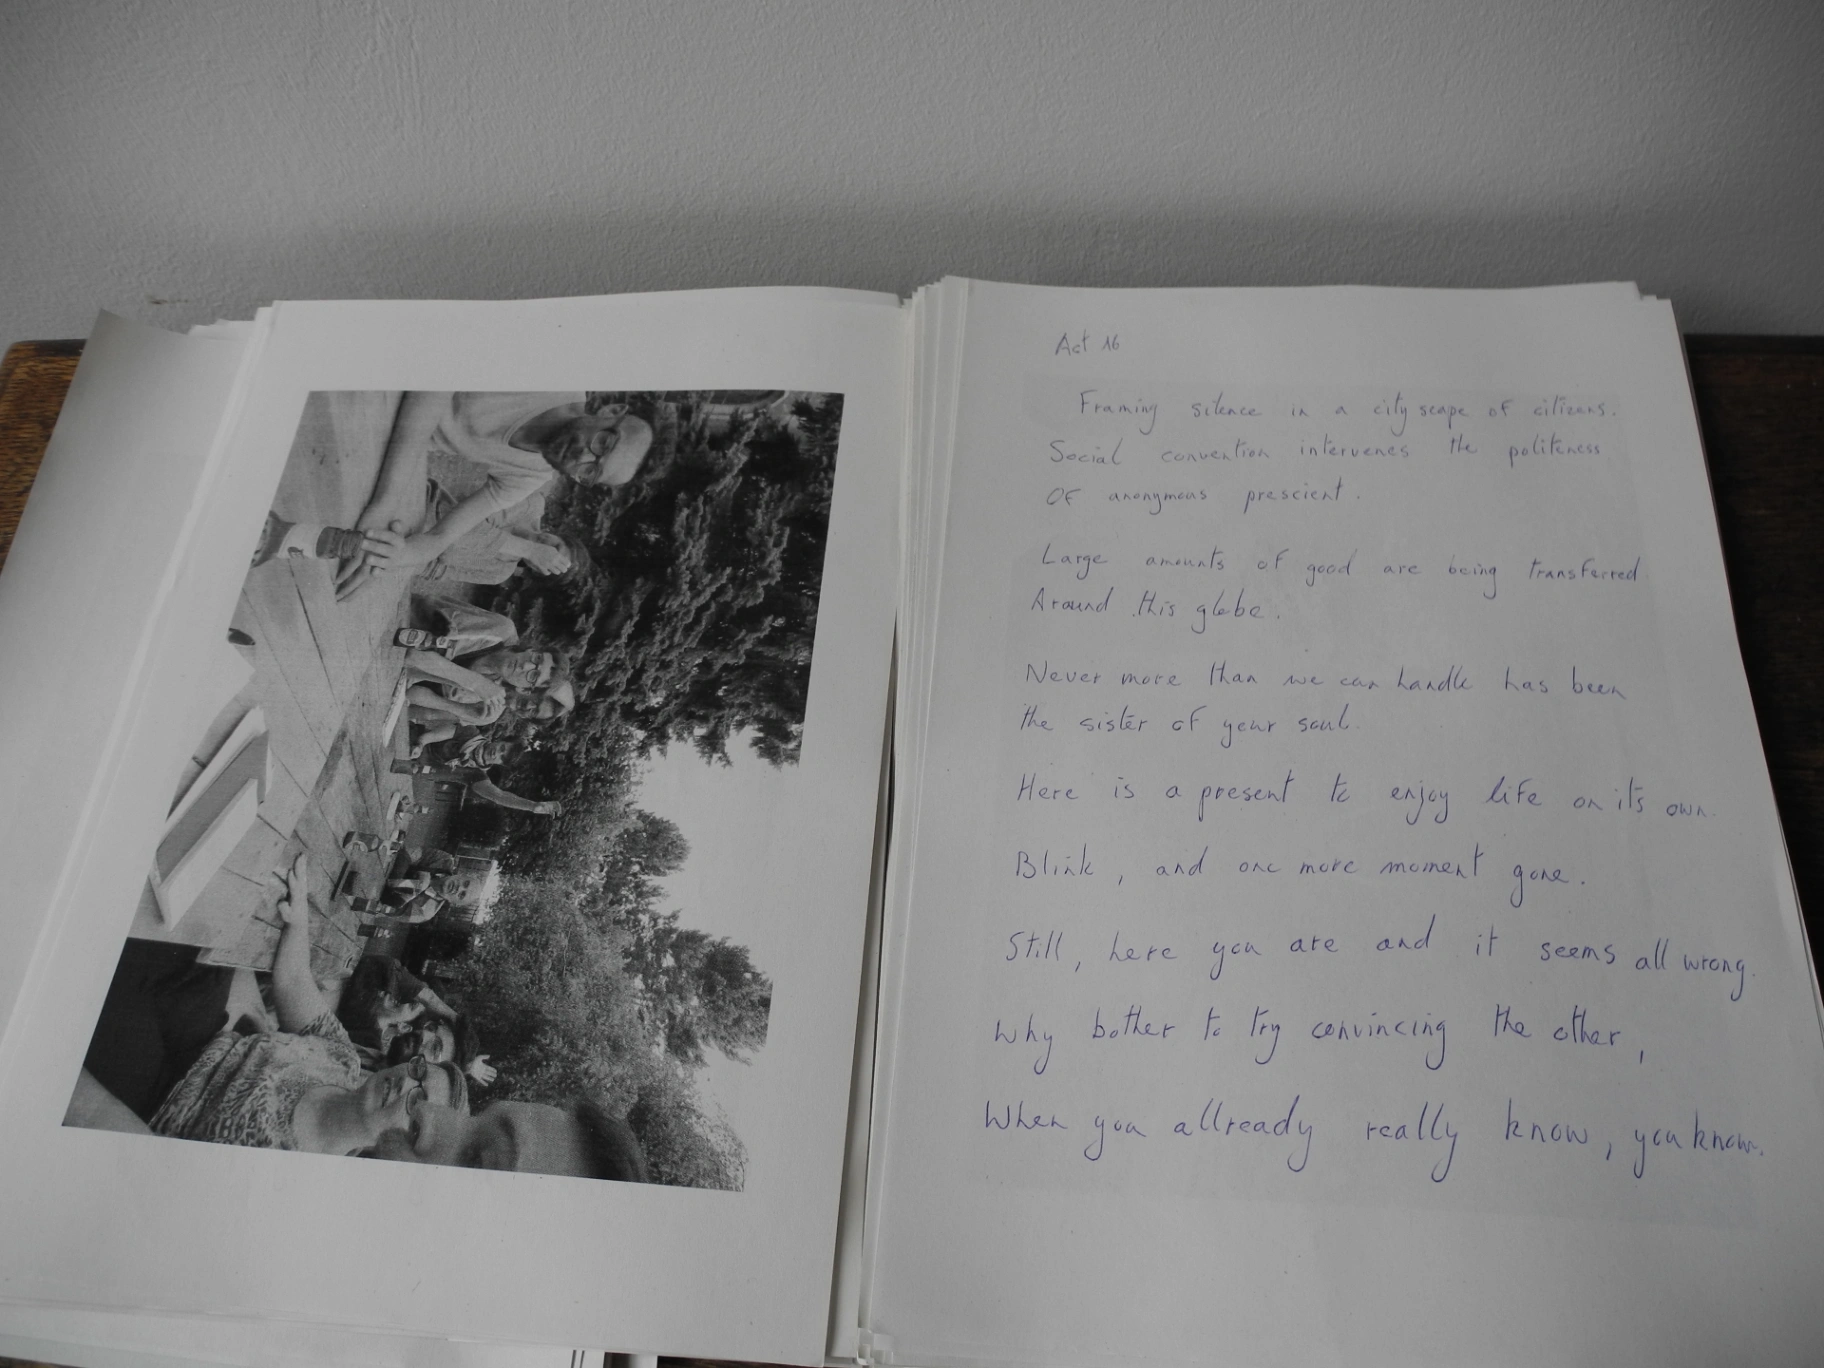 Act 16
Framing silence in a city scape of citizens.
Social convention intervenes the politeness
OF anonymous prescient.
Large amounts of good are being transferred
Around this globe.
Never more than we can handle has been
the sister of your soul.
Here is a present to enjoy life on its own.
Blink, and one more moment gone.
Still, here you are and it seems all wrong.
Why bother to try convincing the other,
When you allready really know, you know.